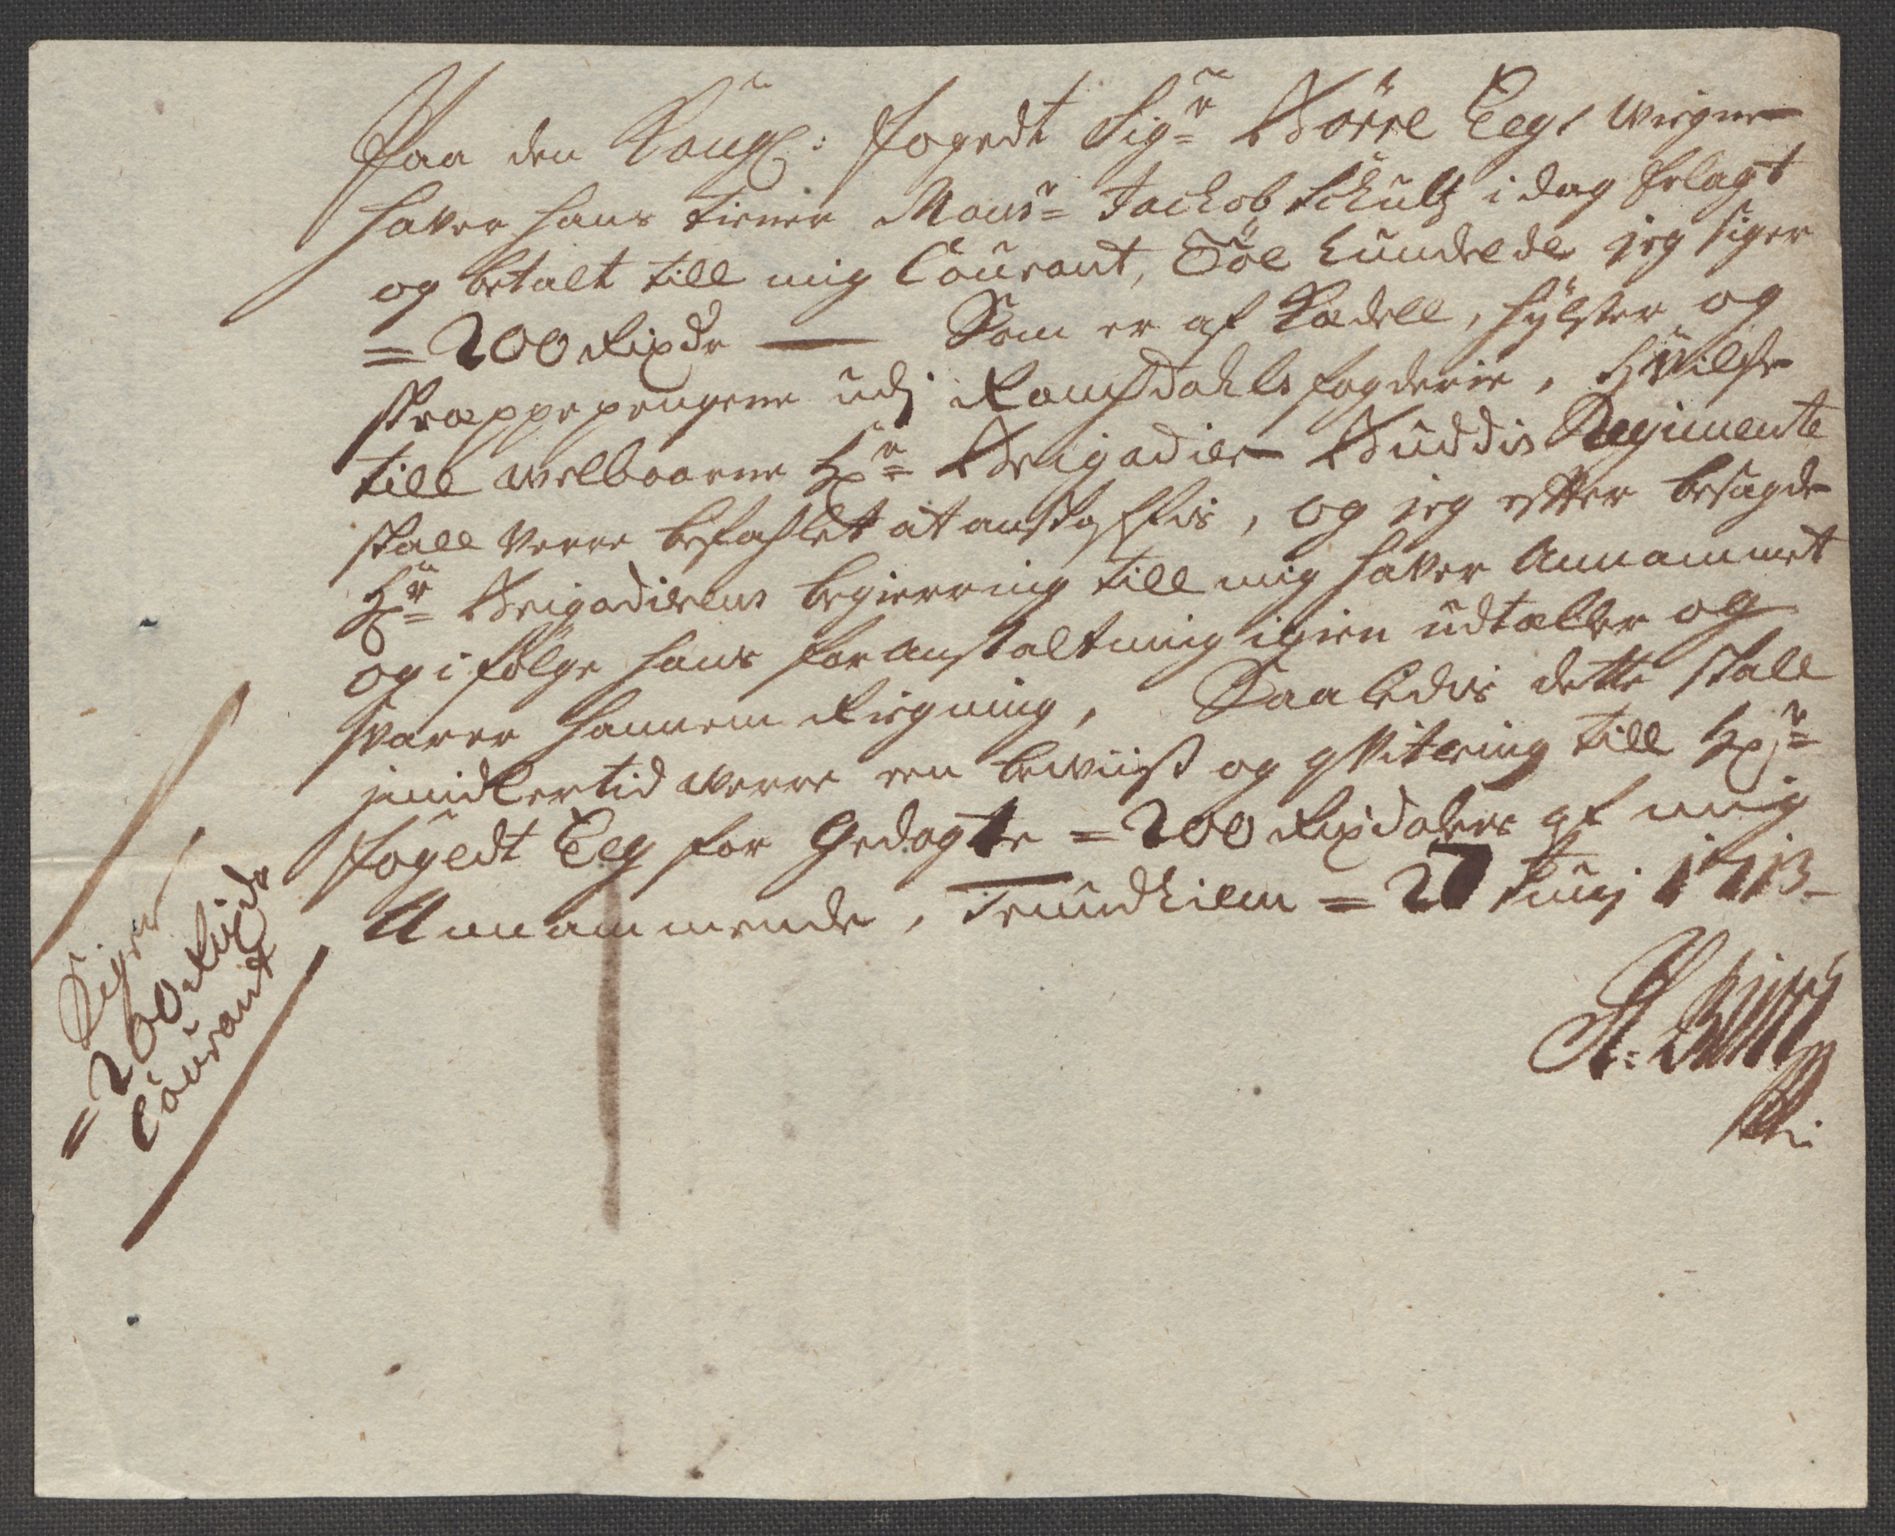 Paa den Kongl: fogedt Sigr Börre Eegs weigne
haver hans tiener Monsr Jachob Schultz i dag erlagt
og betalt till mig Courant, Toe hundrede jeg siger
= 200 Rixdr — Som er af Sadell, hylster og
skrappepengene udj Romsdahls fogderie, Hvilche
till welbaarne Hr Brigadier Buddis Regimente
skall verre befahlet at anskaffis, og jeg efter besagde
Hr Brigadirens begierring till mig haver Annammet
og i følge hans foranstaltning igien udtæller og
svarer hannem Reigning, Saaledis dette skall
jmidlertid werre een beviisß og qvitering till Hr
fogedt Eeg for Gedagte = 200 Rixdalers af mig
Annammende, Trundhiem = 27 Junj 1713
Siger
= 200 Rixdr
Courant